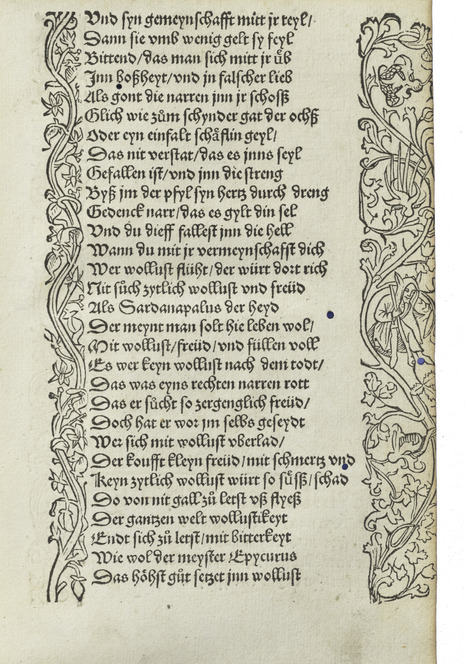 Vnd syn gemeynschafft mitt jr teyl/
Dann sie vmb wenig gelt sy feyl
Bittend/das man sich mitt jr uͤb
Jnn boßheyt/vnd jn falscher lieb
Als gont die narren jnn jr schoß
Glich wie zům schynder gat der ochß
Oder eyn einfalt schaͤflin geyl/
Das nit verstat/das es jnns seyl
Gefallen ist/vnd jnn die streng
Byß jm der pfyl syn hertz durch dreng
Gedenck narr/das es gylt din sel
Vnd du dieff fallest jnn die hell
Wann du mit jr vermeynschafft dich
Wer wollust flüht/der würt dort rich
Nit sůch zytlich wollust vnd freüd
Als Sardanapalus der heyd
Der meynt man solt hie leben wol/
Mit wollust/freüd/vnd füllen voll
Es wer keyn wollust nach dem todt/
Das was eyns rechten narren rott
Das er sůcht so zergenglich freüd/
Doch hat er wor jm selbs geseydt
Wer sich mit wollust vberlad/
Der koufft kleyn freüd/mit schmertz vnd
Keyn zytlich wollust würt so sůß/ schad
Do von nit gall zů letst vß flyeß
Der gantzen welt wollustikeyt
Endt sich zů letst/mit bitterkeyt
Wie wol der meyster Epycurus
Das hoͤhst gůt setzet jnn wollust